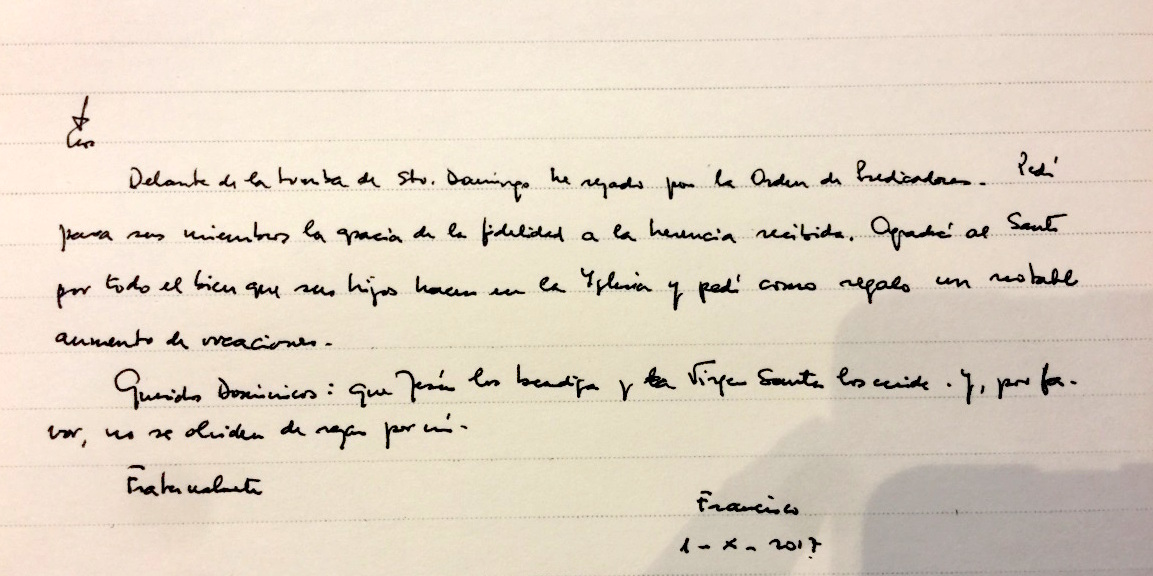 Delante de la tumba de Sto. Domingo he rezado por la Orden de Predicadores. Pedí
para sus miembros la gracia de la fidelidad a la herencia recibida. Agradecí al Santo
por todo el bien que sus hijos hacen en la Yglesia y pedí como regalo un notable
aumento de vocaciones.
Queridos Dominicos: que Jesús los bendiga y la Virgen Santa los cuide. Y, por fa-
vor, no se olviden de rezar por mí.
Fraternalmente
Francisco
1-X-2017